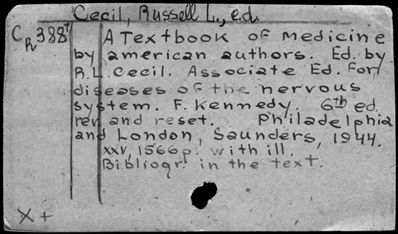 Cecil, Russell L., ed.
CR 388t A Textbook of Medicine
by american authors. Ed. by
R.L. Cecil. Associate Ed. for
diseases of the nervous
system. F. Kennedy. 6th ed.
rev. and reset. Philadelphia
and London, Saunders, 1944.
xxv, 1566p. with ill.
Bibliogr. in the text.
X+